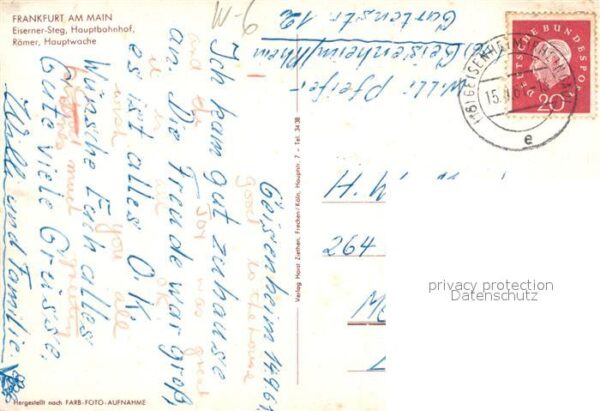 FRANKFURT AM MAIN
Eiserner-Steg, Hauptbahnhof,
Römer, Hauptwache
W-9
Geisenheim 14.9.61
Ich kam gut zuhause
an Die Freude war groß,
es ist alles O.K.
Wünsche Euch alles
Gute viele Grüsse
Willi und Familie
good to the house
and the joy was great
all O.K.
wish you all
much
Verlag Horst Ziethen, Frechen/Köln, Hauptstr. 7 - Tel. 3438
Willi Pfeifer
Geisenheim/Rhein
Gartenstr. 12
DEUTSCHE BUNDESPOST
20
GEISENHEIM
e
M H
264
privacy protection
Datenschutz
Hergestellt nach FARB-FOTO-AUFNAHME